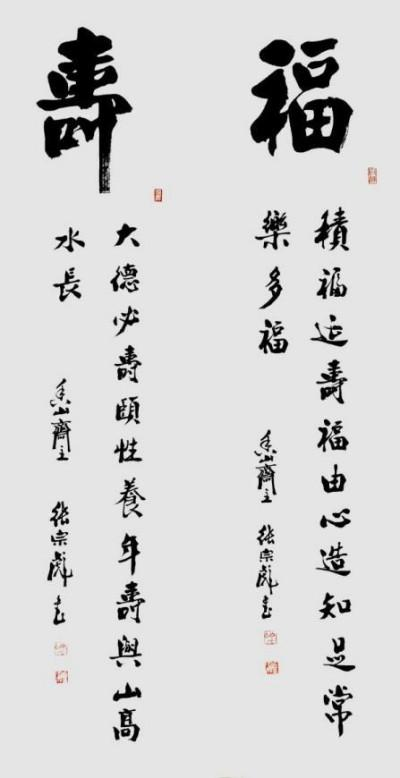 福
積福延壽福由心造知足常
樂多福
香山齋主 張宗彪書
壽
大德必壽頤性養年壽與山高
水長
香山齋主 張宗彪書